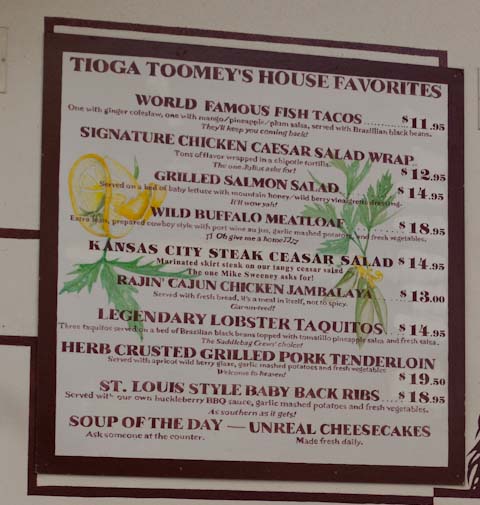 TIOGA TOOMEY'S HOUSE FAVORITES
WORLD FAMOUS FISH TACOS ......... $11.95
One with ginger coleslaw, one with mango/pineapple/plum salsa, served with Brazillian black beans.
They'll keep you coming back!
SIGNATURE CHICKEN CAESAR SALAD WRAP
Tons of flavor wrapped in a chipotle tortilla. $12.95
The one Julius asks for!
GRILLED SALMON SALAD ......... $14.95
Served on a bed of baby lettuce with mountain honey/wild berry vinaigrette dressing.
It'll wow yah!
WILD BUFFALO MEATLOAF ......... $18.95
Extra lean, prepared cowboy style with port wine au jus, garlic mashed potatoes, and fresh vegetables.
Oh give me a home
KANSAS CITY STEAK CEASAR SALAD $14.95
Marinated skirt steak on our tangy ceasar salad
The one Mike Sweeney asks for!
RAJIN' CAJUN CHICKEN JAMBALAYA ... $13.00
Served with fresh bread. It's a meal in itself, not to spicy.
LEGENDARY LOBSTER TAQUITOS ... $14.95
Three taquitos served on a bed of Brazilian black beans topped with tomatillo pineapple salsa and fresh salsa.
The Saddlebag Crews' choice!
HERB CRUSTED GRILLED PORK TENDERLOIN
Served with apricot wild berry glaze, garlic mashed potatoes and fresh vegetables $19.50
Welcome to heaven!
ST. LOUIS STYLE BABY BACK RIBS ... $18.95
Served with our own huckleberry BBQ sauce, garlic mashed potatoes and fresh vegetables.
As southern as it gets!
SOUP OF THE DAY — UNREAL CHEESECAKES
Ask someone at the counter. Made fresh daily.